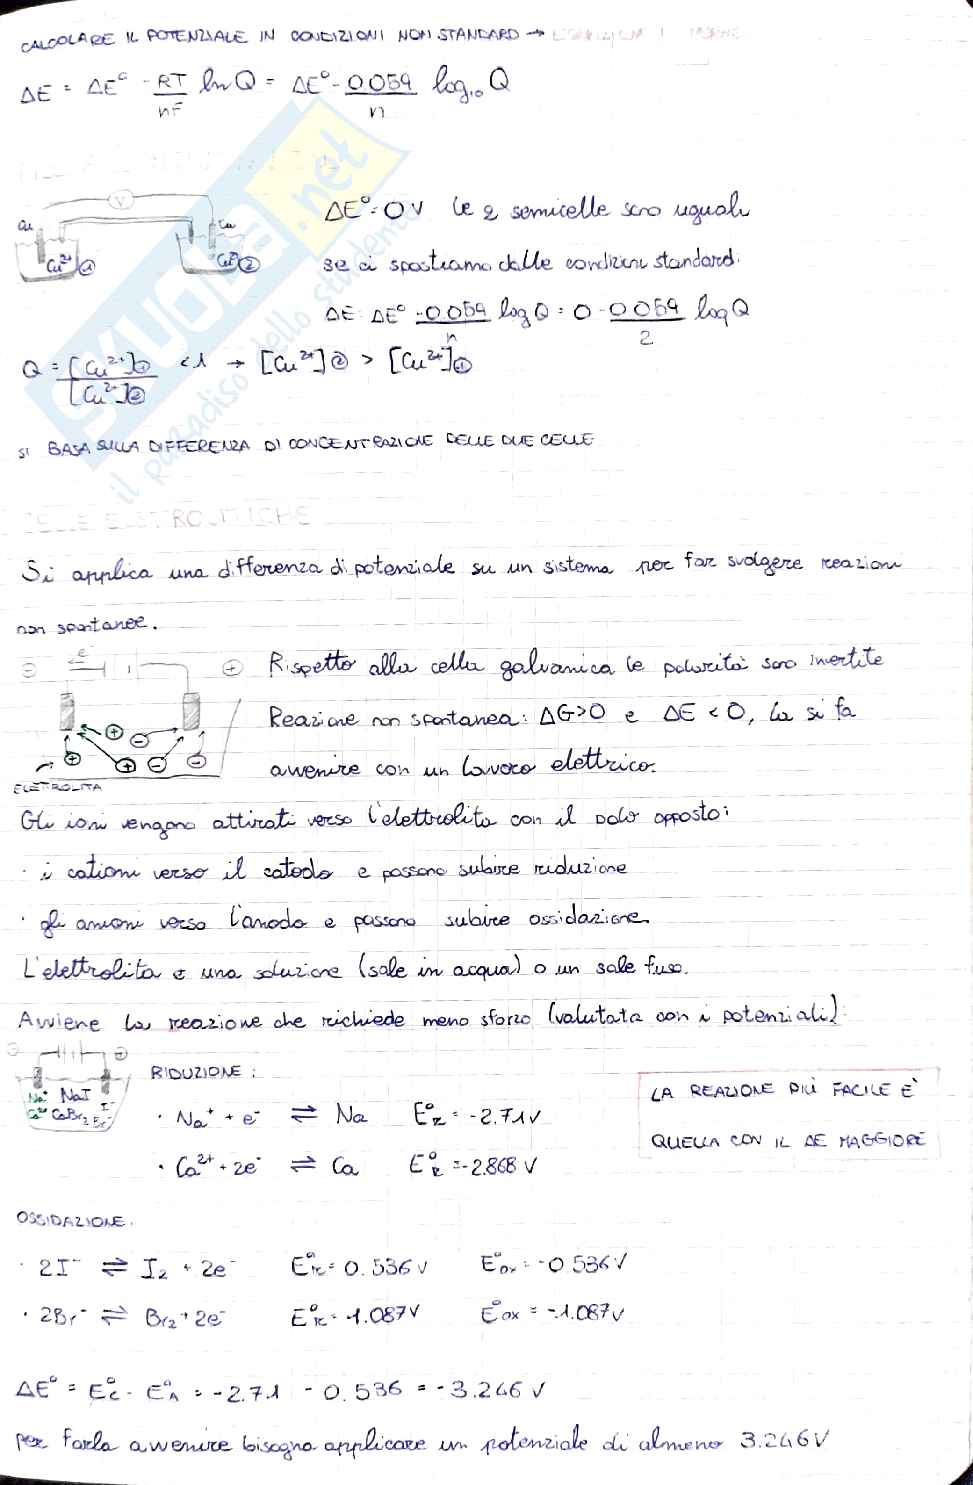 CALCOLARE IL POTENZIALE IN CONDIZIONI NON STANDARD →
ΔE = ΔE° - RT/nF ln Q = ΔE° - 0.059/n log₁₀ Q
V
Cu Cu
Cu²⁺ ① Cu²⁺ ②
ΔE° = 0 V le 2 semicelle sono uguali
se ci spostiamo dalle condizioni standard:
ΔE = ΔE° - 0.059/n log Q = 0 - 0.059/2 log Q
Q = [Cu²⁺]① / [Cu²⁺]② < 1 → [Cu²⁺]② > [Cu²⁺]①
SI BASA SULLA DIFFERENZA DI CONCENTRAZIONE DELLE DUE CELLE
CELLE ELETTROLITICHE
Si applica una differenza di potenziale su un sistema per far svolgere reazioni
non spontanee.
⊖ e⁻ ⊕
Rispetto alla cella galvanica le polarità sono invertite
Reazione non spontanea: ΔG>0 e ΔE < 0, la si fa
avvenire con un lavoro elettrico.
ELETTROLITA
Gli ioni vengono attirati verso l'elettrolita con il polo opposto:
· i cationi verso il catodo e possono subire riduzione
· gli anioni verso l'anodo e possono subire ossidazione.
L'elettrolita è una soluzione (sale in acqua) o un sale fuso.
Avviene la reazione che richiede meno sforzo (valutata con i potenziali).
⊖ ⊕
Na⁺ NaI I⁻
Ca²⁺ CaBr₂ Br⁻
RIDUZIONE:
· Na⁺ + e⁻ ⇌ Na E°R = -2.71 V
· Ca²⁺ + 2e⁻ ⇌ Ca E°R = -2.868 V
LA REAZIONE PIÙ FACILE È
QUELLA CON IL ΔE MAGGIORE
OSSIDAZIONE:
· 2I⁻ ⇌ I₂ + 2e⁻ E°R = 0.536 V E°ox = -0.536 V
· 2Br⁻ ⇌ Br₂ + 2e⁻ E°R = 1.087 V E°ox = -1.087 V
ΔE° = E°C - E°A = -2.71 - 0.536 = -3.246 V
per farla avvenire bisogna applicare un potenziale di almeno 3.246 V
SKUOLA.net
il paradiso dello studente